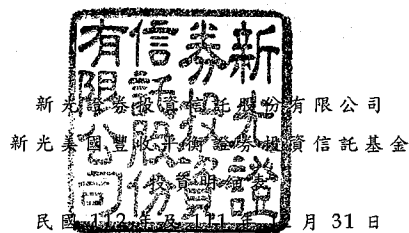 新光證券投資信託股份有限公司
新光美國豐收平衡證券投資信託基金
投資明細表
民國 112 年及 111 年 月 31 日
新光證
券投資
信託股份
有限公司